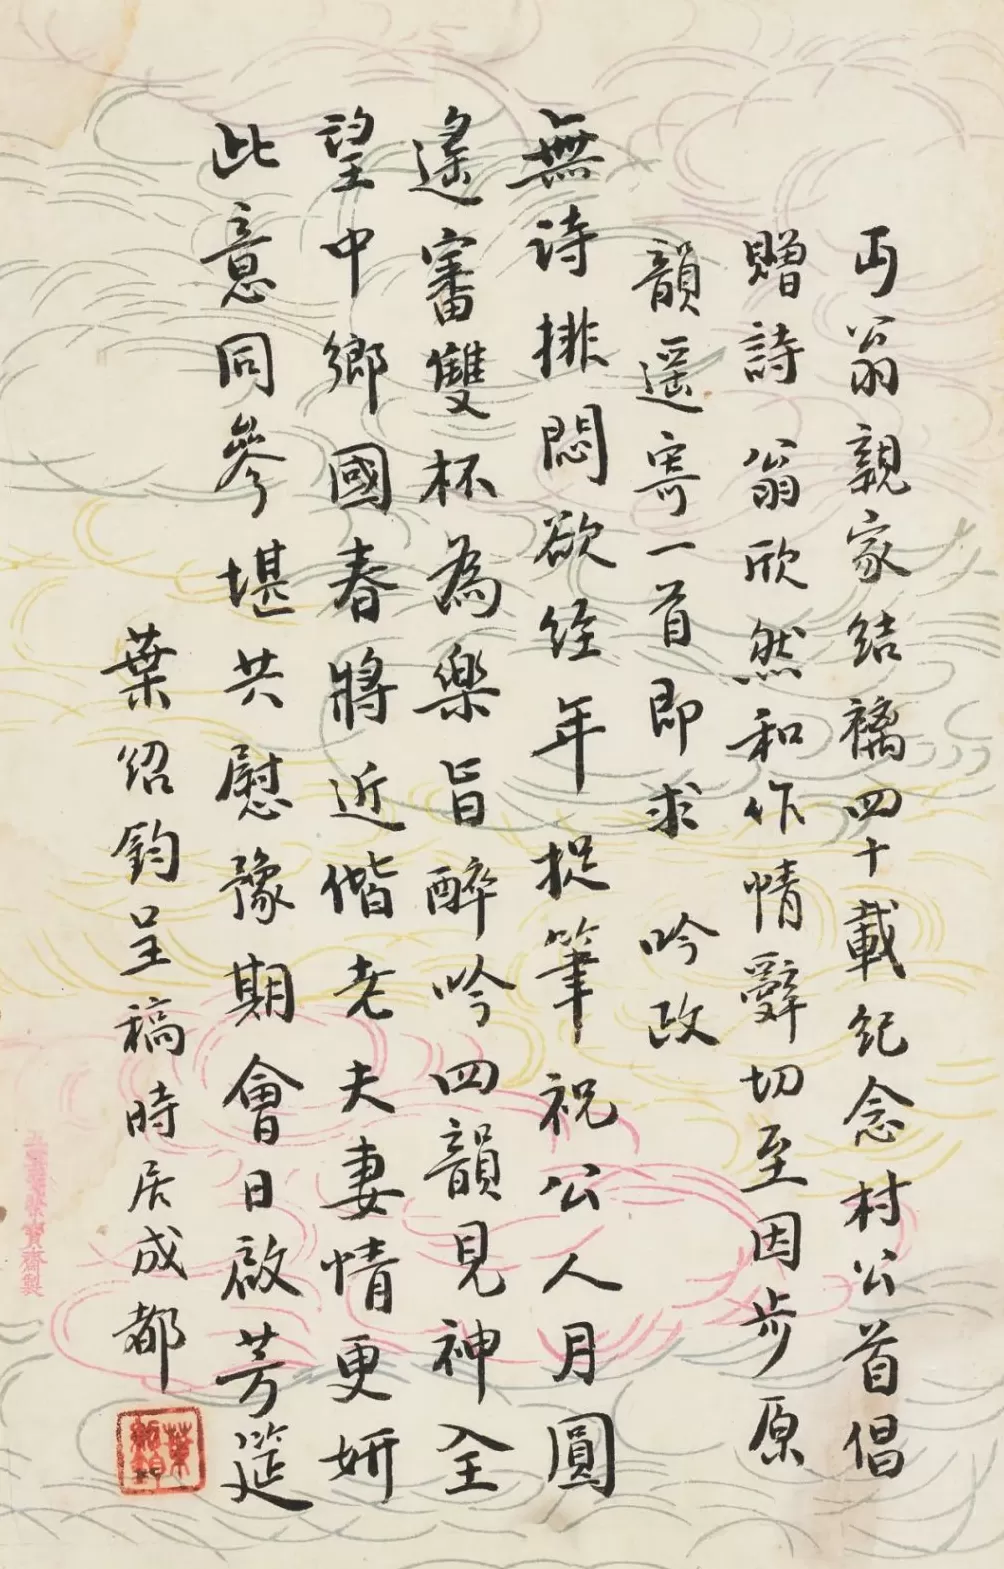 丏翁親家結褵四十載紀念村公首倡
贈詩　翁欣然和作情辭切至因步原
韻遥寄一首即求　吟政
無詩排悶欲經年捉筆祝公人月圓
遙審雙杯為樂旨醉吟四韻見神全
望中鄉國春將近偕老夫妻情更妍
此意同參堪共慰豫期會日啟芳筵
葉紹鈞呈稿時居成都
葉紹鈞